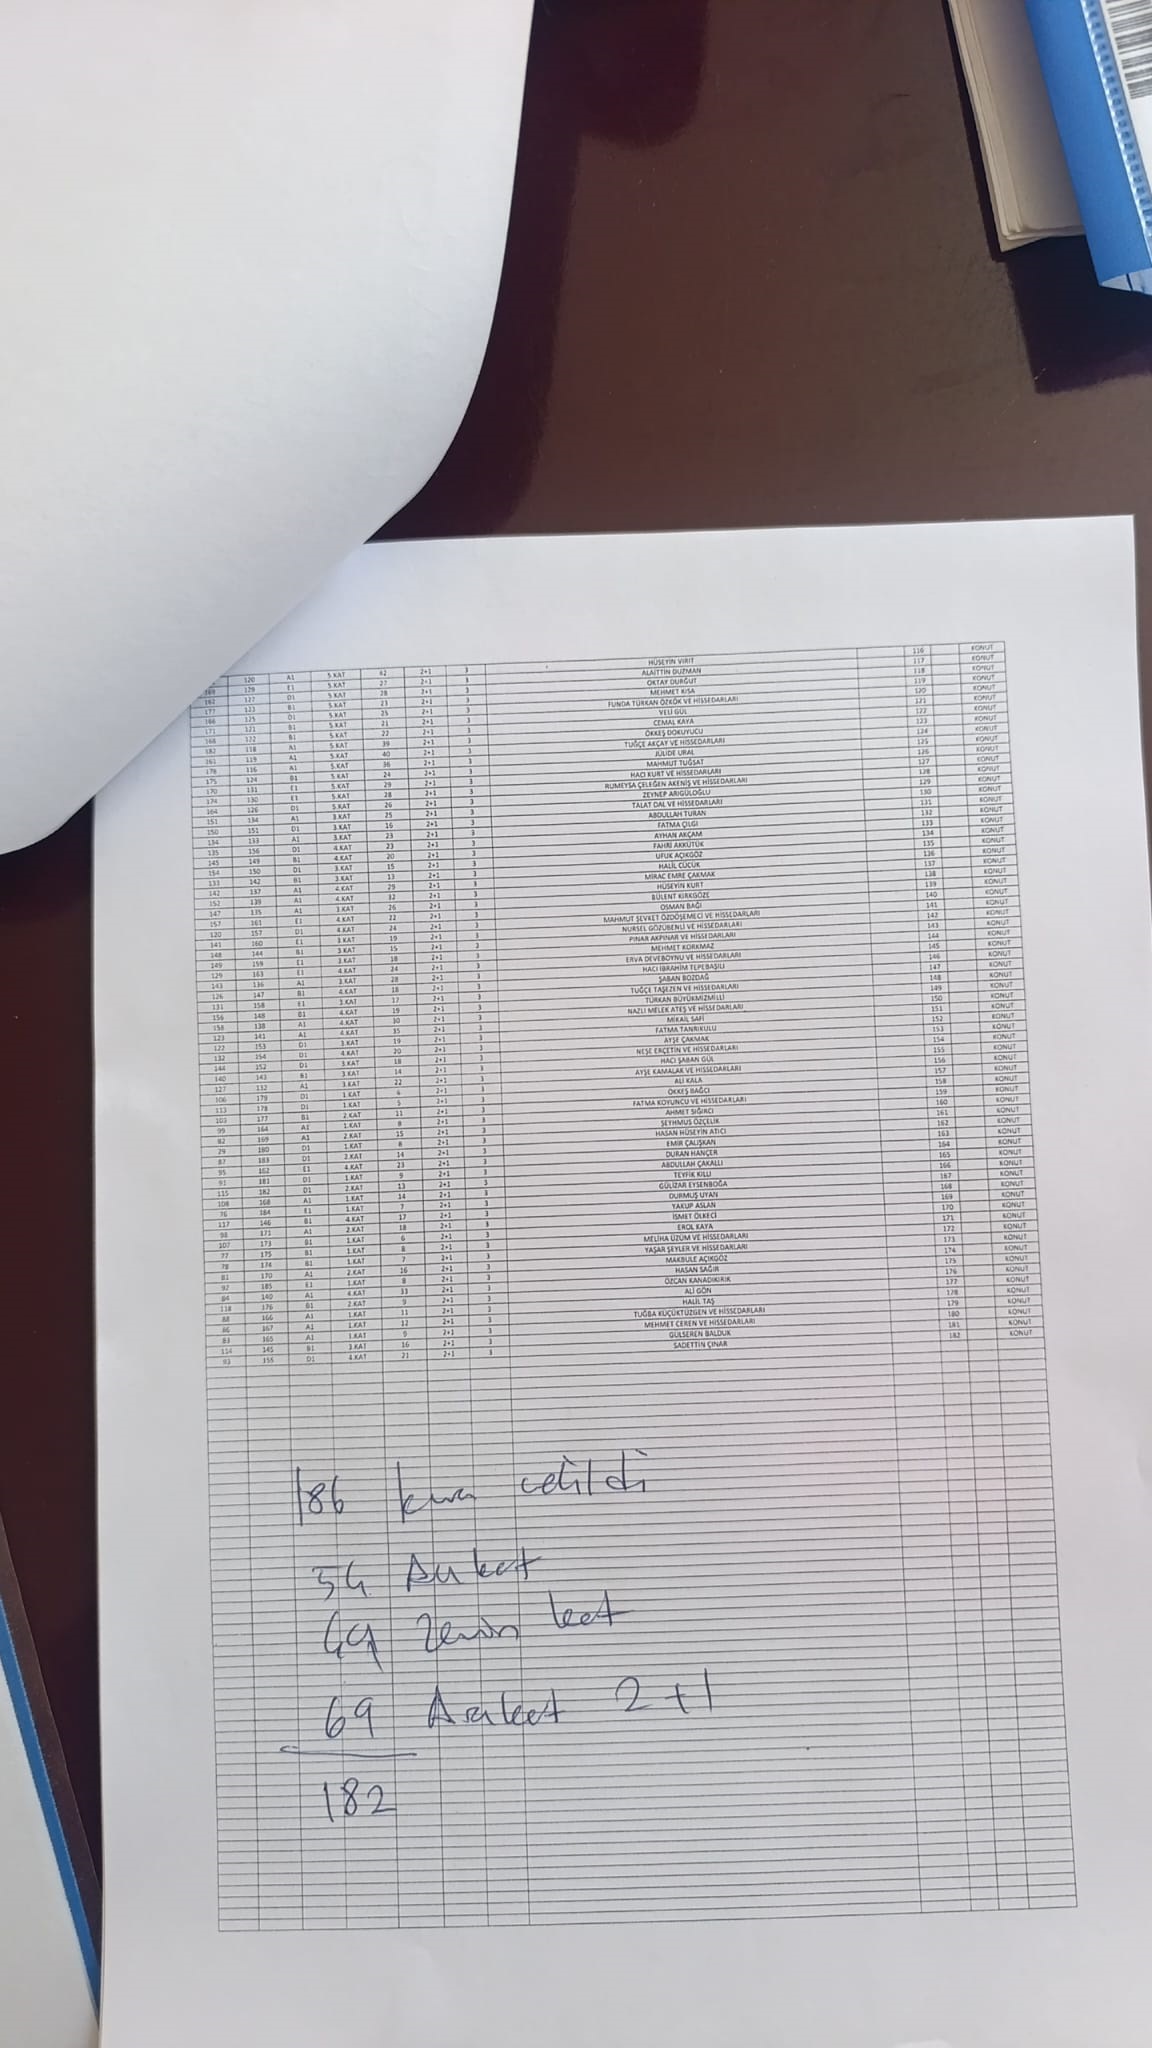 120 A1 5.KAT 42 2+1 3 HÜSEYİN VIRIT 116 KONUT
169 129 E1 5.KAT 27 2+1 3 ALAİTTİN DUZMAN 117 KONUT
162 127 D1 5.KAT 28 2+1 3 OKTAY DURĞUT 118 KONUT
177 123 B1 5.KAT 23 2+1 3 MEHMET KISA 119 KONUT
166 125 D1 5.KAT 25 2+1 3 FUNDA TÜRKAN ÖZKÖK VE HİSSEDARLARI 120 KONUT
171 121 B1 5.KAT 21 2+1 3 VELİ GÜL 121 KONUT
168 122 B1 5.KAT 22 2+1 3 CEMAL KAYA 122 KONUT
182 118 A1 5.KAT 39 2+1 3 ÖKKEŞ DOKUYUCU 123 KONUT
161 119 A1 5.KAT 40 2+1 3 TUĞÇE AKÇAY VE HİSSEDARLARI 124 KONUT
178 116 A1 5.KAT 36 2+1 3 JÜLİDE URAL 125 KONUT
175 124 B1 5.KAT 24 2+1 3 MAHMUT TUĞSAT 126 KONUT
170 131 E1 5.KAT 29 2+1 3 HACI KURT VE HİSSEDARLARI 127 KONUT
174 130 E1 5.KAT 28 2+1 3 RUMEYSA ÇELEĞEN AKENİŞ VE HİSSEDARLARI 128 KONUT
164 126 D1 5.KAT 26 2+1 3 ZEYNEP ARIGÜLOĞLU 129 KONUT
151 134 A1 3.KAT 25 2+1 3 TALAT DAL VE HİSSEDARLARI 130 KONUT
150 151 D1 3.KAT 16 2+1 3 ABDULLAH TURAN 131 KONUT
134 133 A1 3.KAT 23 2+1 3 FATMA ÇILGI 132 KONUT
135 156 D1 4.KAT 23 2+1 3 AYHAN AKÇAM 133 KONUT
145 149 B1 4.KAT 20 2+1 3 FAHRİ AKKÜTÜK 134 KONUT
154 150 D1 3.KAT 15 2+1 3 UFUK AÇIKGÖZ 135 KONUT
133 142 B1 3.KAT 13 2+1 3 HALİL CÜCÜK 136 KONUT
142 137 A1 4.KAT 29 2+1 3 MİRAC EMRE ÇAKMAK 137 KONUT
152 139 A1 4.KAT 32 2+1 3 HÜSEYİN KURT 138 KONUT
147 135 A1 3.KAT 26 2+1 3 BÜLENT KIRKGÖZE 139 KONUT
157 161 E1 4.KAT 22 2+1 3 OSMAN BAĞI 140 KONUT
120 157 D1 4.KAT 24 2+1 3 MAHMUT ŞEVKET ÖZDÖŞEMECİ VE HİSSEDARLARI 141 KONUT
141 160 E1 3.KAT 19 2+1 3 NURSEL GÖZÜBENLİ VE HİSSEDARLARI 142 KONUT
148 144 B1 3.KAT 15 2+1 3 PINAR AKPINAR VE HİSSEDARLARI 143 KONUT
149 159 E1 3.KAT 18 2+1 3 MEHMET KORKMAZ 144 KONUT
129 163 E1 4.KAT 24 2+1 3 ERVA DEVEBOYNU VE HİSSEDARLARI 145 KONUT
143 136 A1 3.KAT 28 2+1 3 HACI İBRAHİM TEPEBAŞILI 146 KONUT
126 147 B1 4.KAT 18 2+1 3 ŞABAN BOZDAĞ 147 KONUT
131 158 E1 3.KAT 17 2+1 3 TUĞÇE TAŞEZEN VE HİSSEDARLARI 148 KONUT
156 148 B1 4.KAT 19 2+1 3 TÜRKAN BÜYÜKMIZMILLI 149 KONUT
158 138 A1 4.KAT 30 2+1 3 NAZLI MELEK ATEŞ VE HİSSEDARLARI 150 KONUT
123 141 A1 4.KAT 35 2+1 3 MİKAİL SAFİ 151 KONUT
122 153 D1 3.KAT 19 2+1 3 FATMA TANRIKULU 152 KONUT
132 154 D1 4.KAT 20 2+1 3 AYŞE ÇAKMAK 153 KONUT
144 152 D1 3.KAT 18 2+1 3 NEŞE ERÇETİN VE HİSSEDARLARI 154 KONUT
140 143 B1 3.KAT 14 2+1 3 HACI ŞABAN GÜL 155 KONUT
127 132 A1 3.KAT 22 2+1 3 AYŞE KAMALAK VE HİSSEDARLARI 156 KONUT
106 179 D1 1.KAT 6 2+1 3 ALİ KALA 157 KONUT
113 178 D1 1.KAT 5 2+1 3 ÖKKEŞ BAĞCI 158 KONUT
103 177 B1 2.KAT 11 2+1 3 FATMA KOYUNCU VE HİSSEDARLARI 159 KONUT
99 164 A1 1.KAT 8 2+1 3 AHMET SIĞIRCI 160 KONUT
82 169 A1 2.KAT 15 2+1 3 ŞEYHMUS ÖZÇELİK 161 KONUT
29 180 D1 1.KAT 8 2+1 3 HASAN HÜSEYİN ATICI 162 KONUT
87 183 D1 2.KAT 14 2+1 3 EMİR ÇALIŞKAN 163 KONUT
95 162 E1 4.KAT 23 2+1 3 DURAN HANÇER 164 KONUT
91 181 D1 1.KAT 9 2+1 3 ABDULLAH ÇAKALLI 165 KONUT
115 182 D1 2.KAT 13 2+1 3 TEYFİK KILLI 166 KONUT
108 168 A1 1.KAT 14 2+1 3 GÜLİZAR EYSENBOĞA 167 KONUT
76 184 E1 1.KAT 7 2+1 3 DURMUŞ UYAN 168 KONUT
117 146 B1 4.KAT 17 2+1 3 YAKUP ASLAN 169 KONUT
98 171 A1 2.KAT 18 2+1 3 İSMET ÖLKECİ 170 KONUT
107 173 B1 1.KAT 6 2+1 3 EROL KAYA 171 KONUT
77 175 B1 1.KAT 8 2+1 3 MELİHA ÜZÜM VE HİSSEDARLARI 172 KONUT
78 174 B1 1.KAT 7 2+1 3 YAŞAR ŞEYLER VE HİSSEDARLARI 173 KONUT
81 170 A1 2.KAT 16 2+1 3 MAKBULE AÇIKGÖZ 174 KONUT
92 185 E1 1.KAT 8 2+1 3 HASAN SAĞIR 175 KONUT
84 140 A1 4.KAT 33 2+1 3 ÖZCAN KANADIKIRIK 176 KONUT
118 176 B1 2.KAT 9 2+1 3 ALİ GÖN 177 KONUT
88 166 A1 1.KAT 11 2+1 3 HALİL TAŞ 178 KONUT
86 167 A1 1.KAT 12 2+1 3 TUĞBA KÜÇÜKTÜZGEN VE HİSSEDARLARI 179 KONUT
83 165 A1 1.KAT 9 2+1 3 MEHMET CEREN VE HİSSEDARLARI 180 KONUT
114 145 B1 3.KAT 16 2+1 3 GÜLSEREN BALDUK 181 KONUT
93 155 D1 4.KAT 21 2+1 3 SADETTİN ÇINAR 182 KONUT
186 kura edildi
Arakat
zemin kat
69 Arakat 2+1
182